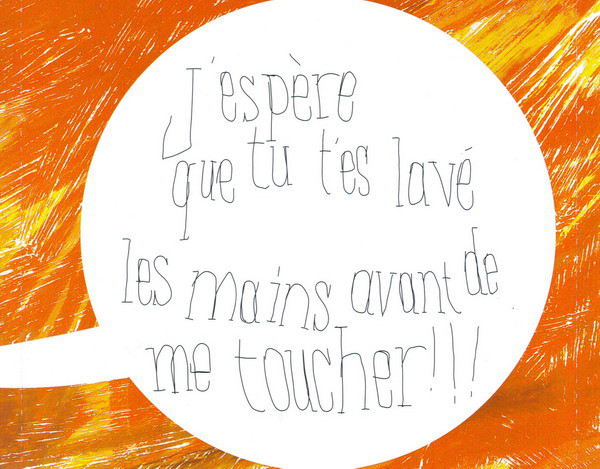 J'espère
que tu t'es lavé
les mains avant de
me toucher!!!